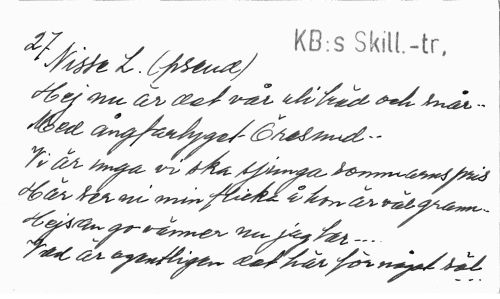 27
KB:s Skill.-tr.
Nisse L. (pseud)
Hej nu är det vår uti träd och snår..
Med ångfartyget Öresund..
Vi är unga vi ska sjunga sommarns pris
Här ser ni min flicka å hon är väl grann..
Hejsan go vänner nu jag har....
Vad är egentligen det här för något säl